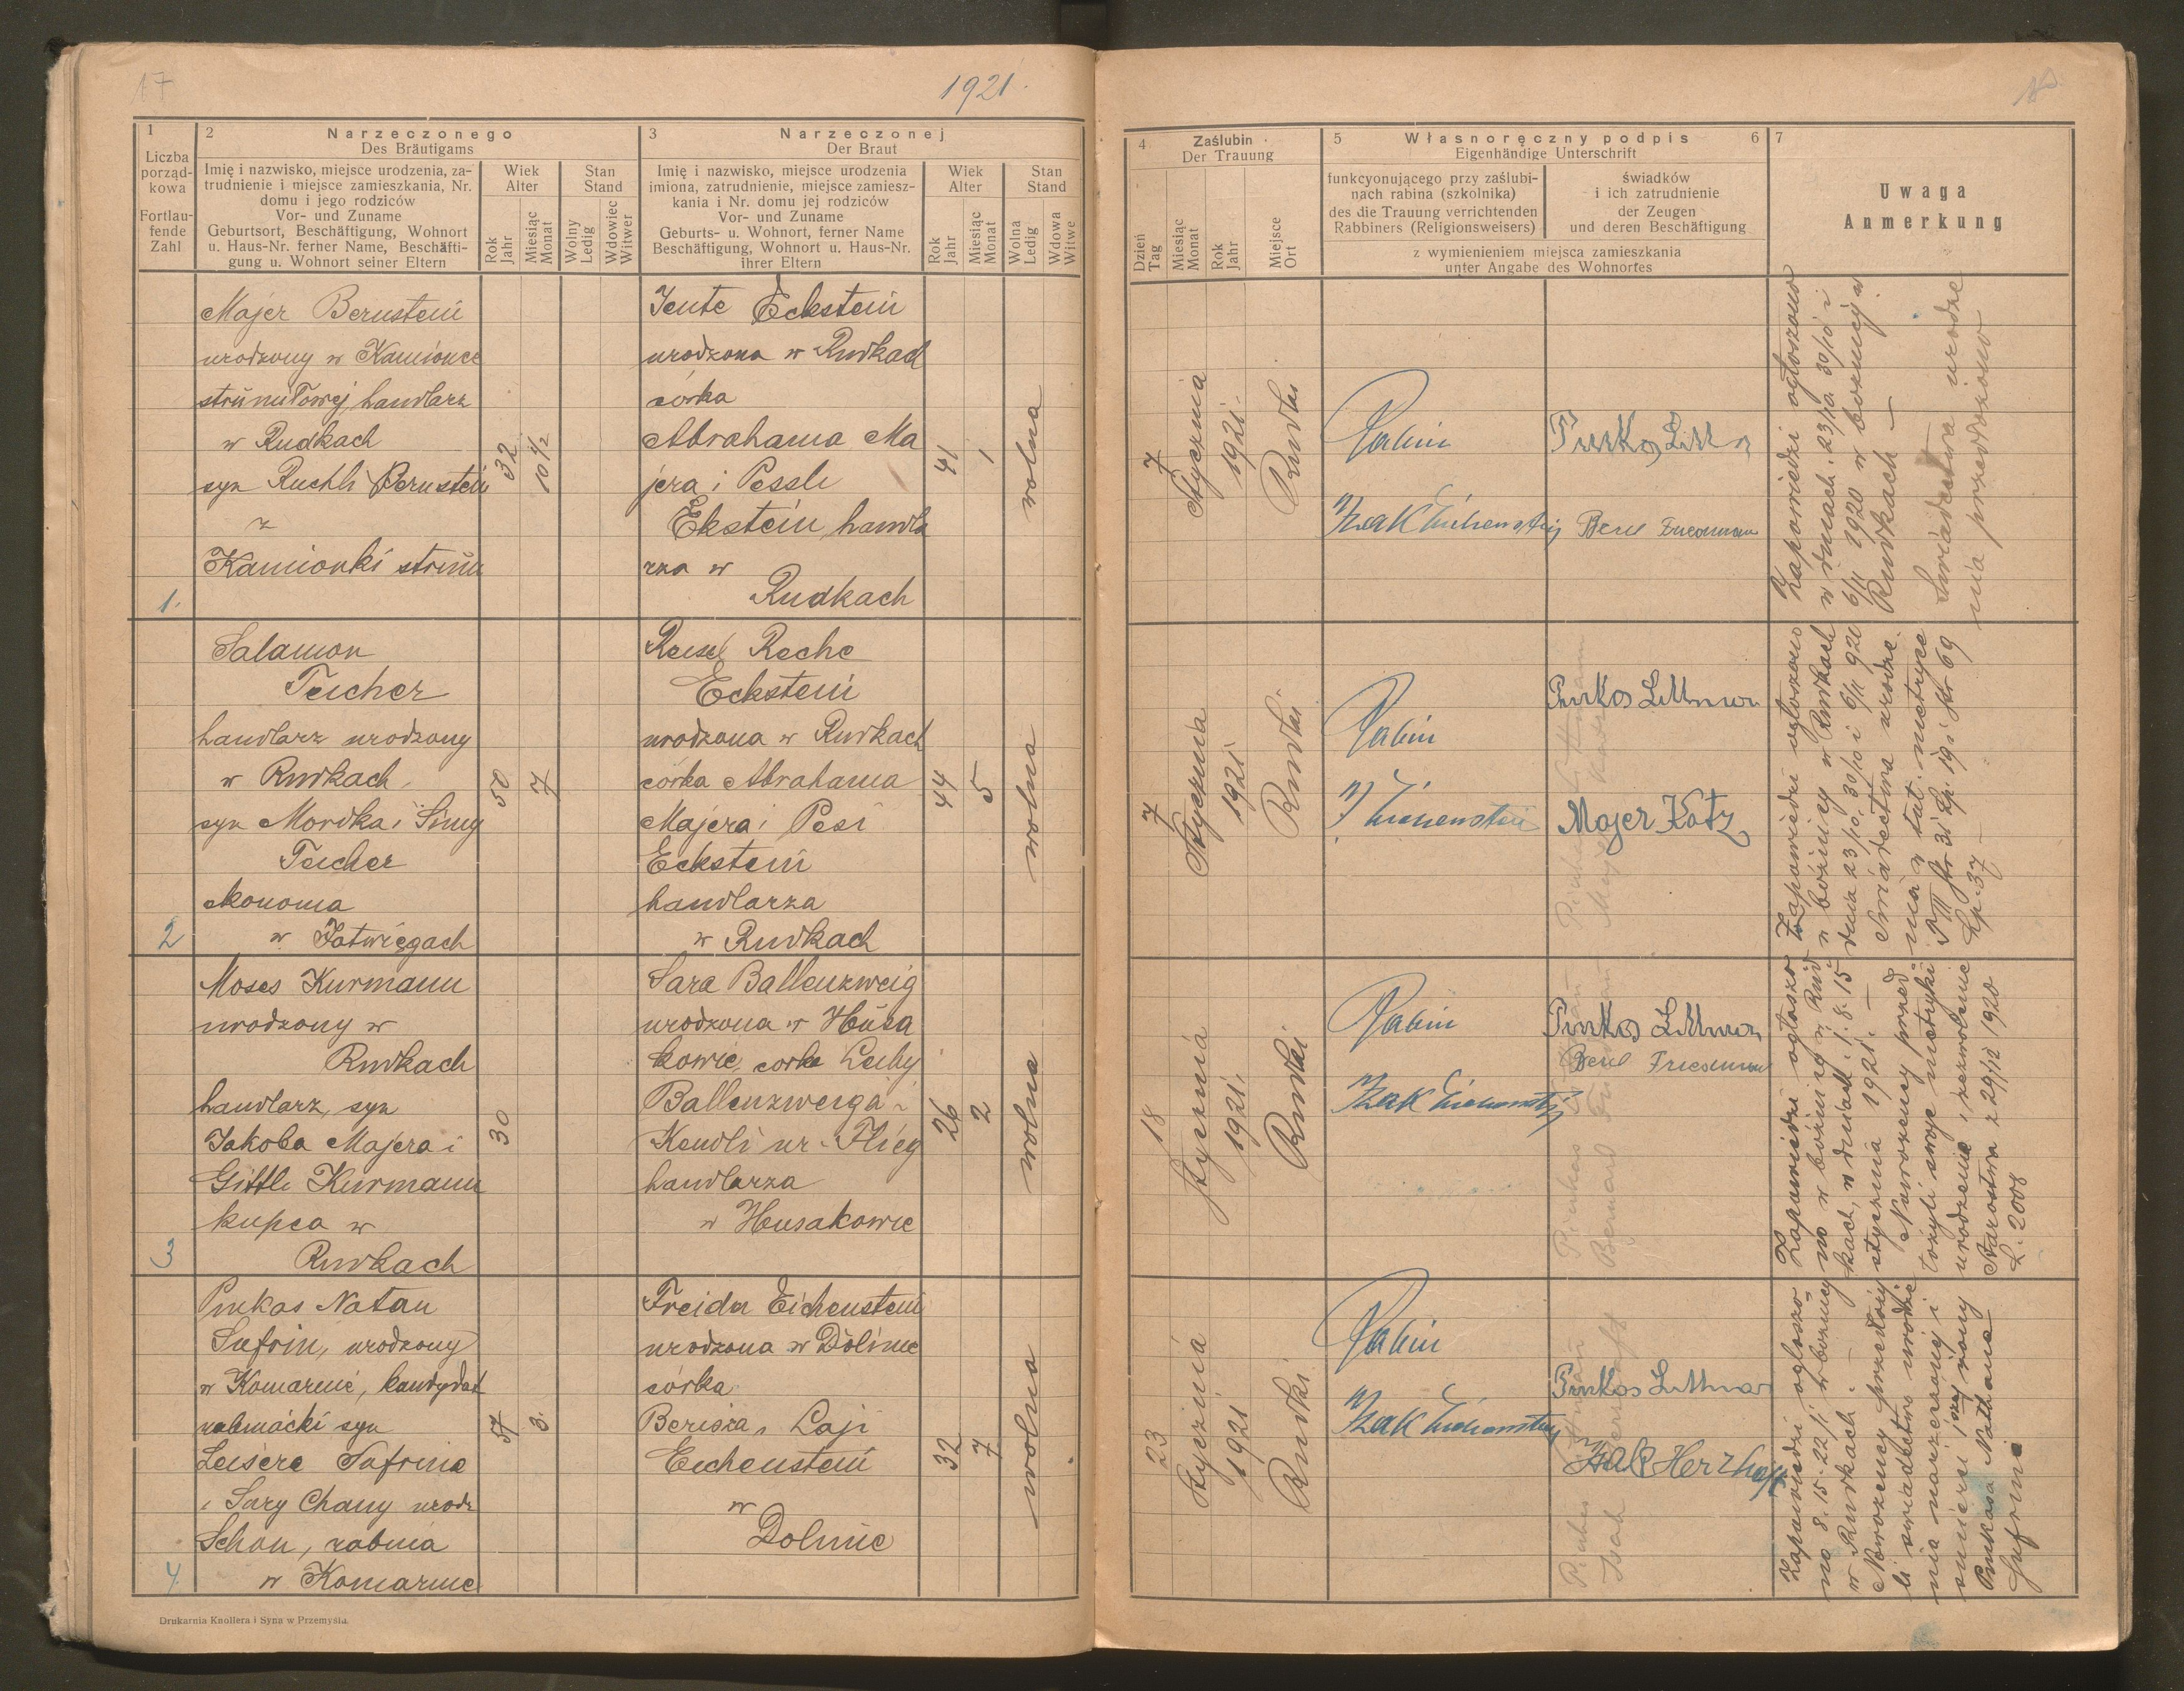 17
1921.
1
Liczba
porząd-
kowa
Fortlau-
fende
Zahl
2
Narzeczonego
Des Bräutigams
Imię i nazwisko, miejsce urodzenia, za-
trudnienie i miejsce zamieszkania, Nr.
domu i jego rodziców
Vor- und Zuname
Geburtsort, Beschäftigung, Wohnort
u. Haus-Nr. ferner Name, Beschäfti-
gung u. Wohnort seiner Eltern
Wiek
Alter
Rok
Jahr
Miesiąc
Monat
Stan
Stand
Wolny
Ledig
Wdowiec
Witwer
3
Narzeczonej
Der Braut
Imię i nazwisko, miejsce urodzenia
imiona, zatrudnienie, miejsce zamiesz-
kania i Nr. domu jej rodziców
Vor- und Zuname
Geburts- u. Wohnort, ferner Name
Beschäftigung, Wohnort u. Haus-Nr.
ihrer Eltern
Wiek
Alter
Rok
Jahr
Miesiąc
Monat
Stan
Stand
Wolna
Ledig
Wdowa
Witwe
4
Zaślubin
Der Trauung
Dzień
Tag
Miesiąc
Monat
Rok
Jahr
Miejsce
Ort
5
Własnoręczny podpis
6
Eigenhändige Unterschrift
funkcyonującego przy zaślubi-
nach rabina (szkolnika)
des die Trauung verrichtenden
Rabbiners (Religionsweisers)
świadków
i ich zatrudnienie
der Zeugen
und deren Beschäftigung
z wymienieniem miejsca zamieszkania
unter Angabe des Wohnortes
7
Uwaga
Anmerkung
1.
Majer Bernstein
urodzony w Kamionce
strumiłowej, handlarz
w Rudkach
syn Ruchli Bernstein
z
Kamionki strum
32
10 1/2
Jente Eckstein
urodzona w Rudkach
córka
Abrahama Ma
jera i Pessli
Ekstein, handla
rza w
Rudkach
41
1
wolna
7
Stycznia
1921.
Rudki
Rabin
Pinkas Littman
Berl Friedman
Zapowiedzi ogłoszono
w dniach 23/10. 30/10 i
6/11 1920 w bożnicy w
Rudkach —
Świadectwa urodze
nia przedłożono
2
Salamon
Teicher
handlarz urodzony
w Rudkach,
syn Mordka i Simy
Teicher
ekonoma
w Jatwięgach
50
7
Reisel Reche
Eckstein
urodzona w Rudkach
córka Abrahama
Majera i Pesi
Eckstein
handlarza
w Rudkach
44
5
wolna
7
Stycznia
1921
Rudki
Rabin
Pinkas Littman
Majer Katz
Zapowiedzi ogłoszono
w bożnicy w Rudkach
dnia 23/10, 30/10 i 6/11 920
Świadectwa urodze
nia w tut. metryce
Lp. 37 —
3
Moses Kurmann
urodzony w
Rudkach
handlarz, syn
Jakoba Majera i
Gittli Kurmann
kupca w
Rudkach
30
Sara Ballenzweig
urodzona w Husa
kowie, corka
Ballenzweiga i
Kendli ur. Flieg
handlarza
w Husakowie
26
2
wolna
18
stycznia
1921.
Rudki
Rabin
Pinkas Littman
Berl Friedman
Pinkas Littman
Bernard Friedman
Zapowiedzi ogłoszo
no w bożnicy w Rud
kach, w dniach 1. 8. 15
stycznia 1921. —
Nowożeńcy przed
łożyli swoje metryki
urodzenia i zezwolenie
Starostwa z 29/12 1920
L: 2008
4.
Pinkas Natan
Safrin, urodzony
w Komarnie, kandydat
rabinacki syn
Leisera Safrina
i Sary Chany urodz
Schon, rabina
w Komarnie
57
3.
Freida Eichenstein
urodzona w Dolinie
córka
Berisza i Laji
Eichenstein
w
Dolinie
32
7
wolna
23
stycznia
1921
Rudki
Rabin
Pinkas Littman
Zapowiedzi ogłoszo
no 8. 15. 22/1 w bożnicy
w Rudkach. —
Nowożeńcy przedłoży
li świadectwa urodze
nia narzeczonej i
śmierci 1szej żony
Pinkasa Nathana
Safrina
Drukarnia Knollera i Syna w Przemyślu.